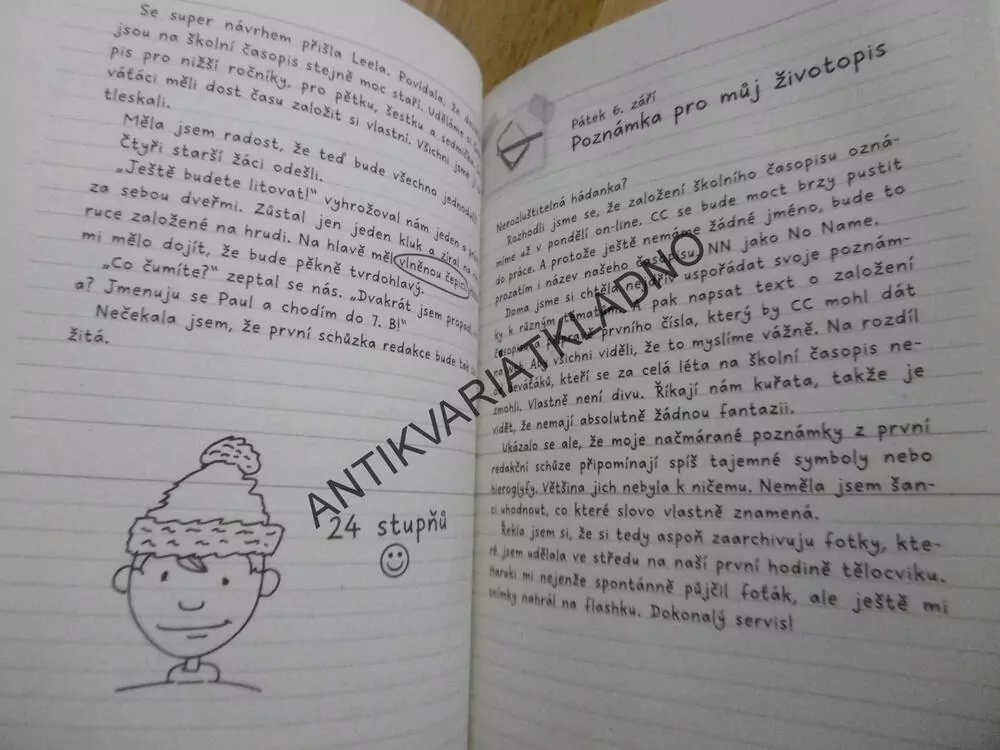 Se super návrhem přišla Leela. Povídala, že
jsou na školní časopis stejně moc staří. Uděláme si
pis pro nižší ročníky, pro pětku, šestku a sedmičku.
váťáci měli dost času založit si vlastní. Všichni jsme
tleskali.
Měla jsem radost, že teď bude všechno
Čtyři starší žáci odešli.
„Ještě budete litovat!“ vyhrožoval nám jeden a
za sebou dveřmi. Zůstal jen jeden kluk a zíral na
ruce založené na hrudi. Na hlavě měl vlněnou čepici,
mi mělo dojít, že bude pěkně tvrdohlavý.
„Co čumíte?“ zeptal se nás. „Dvakrát jsem propadl,
a? Jmenuju se Paul a chodím do 7. B!“
Nečekala jsem, že první schůzka redakce bude tak
žitá.
24 stupňů
Pátek 6. září
Poznámka pro můj životopis
Nerozluštitelná hádanka?
Rozhodli jsme se, že založení školního časopisu ozná-
míme už v pondělí on-line. CC se bude moct brzy pustit
do práce. A protože ještě nemáme žádné jméno, bude to
prozatím i název našeho časopisu. NN jako No Name.
Doma jsme si chtěla nejdřív uspořádat svoje poznám-
ky k různým tématům. A pak napsat text o založení
časopisu a přípravě prvního čísla, který by CC mohl dát
na web. Aby všichni viděli, že to myslíme vážně. Na rozdíl
od deváťáků, kteří se za celá léta na školní časopis ne-
zmohli. Vlastně není divu. Říkají nám kuřata, takže je
vidět, že nemají absolutně žádnou fantazii.
Ukázalo se ale, že moje načmárané poznámky z první
redakční schůze připomínají spíš tajemné symboly nebo
hieroglyfy. Většina jich nebyla k ničemu. Neměla jsem šan-
ci uhodnout, co které slovo vlastně znamená.
Řekla jsem si, že si tedy aspoň zaarchivuju fotky, kte-
ré jsem udělala ve středu na naší první hodině tělocviku.
Haruki mi nejenže spontánně půjčil foťák, ale ještě mi
snímky nahrál na flashku. Dokonalý servis!
ANTIKVARIATKLADNO